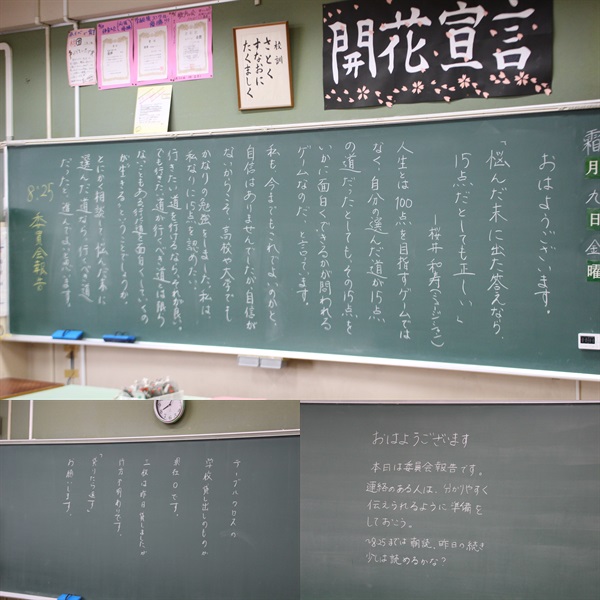 校訓
さとく
すなおに
たくましく
開花宣言
霜月九日金曜
おはようございます。
「悩んだ末に出た答えなら、
15点だとしても正しい」
―桜井和寿(Mr.Children)
人生とは100点を目指すゲームでは
なく、自分の選んだ道が15点
の道だったとしても、その15点を
いかに面白くできるかが問われる
ゲームなのだ、と言っています。
私も、今までもこれでよいのかと、
自信はありませんでしたが、自信が
ないからこそ、高校や大学でも
かなりの勉強をしました。私は
私なりに15点を認めたい。
行きたい道を行けるなら、それが良い。
でも行きたい道が行くべき道とは限ら
ないこともある。行く道を面白くしていくの
が生きるということでしょうか。
とにかく相談して悩んだ末に
選んだ道なら、行くべき道
だったと
8:25 委員会報告
ラーズハウロスの
学校貸し出しのものが
現在0です。
二枚は昨日貸しましたが
行方も判りです。
"貸りたら返す"
お願いします。
おはようございます
本日は委員会報告です。
連絡のある人は、分かりやすく
伝えられるように準備を
しておこう。
~8:25までは朝読、昨日の続き
少しは読めるかな?